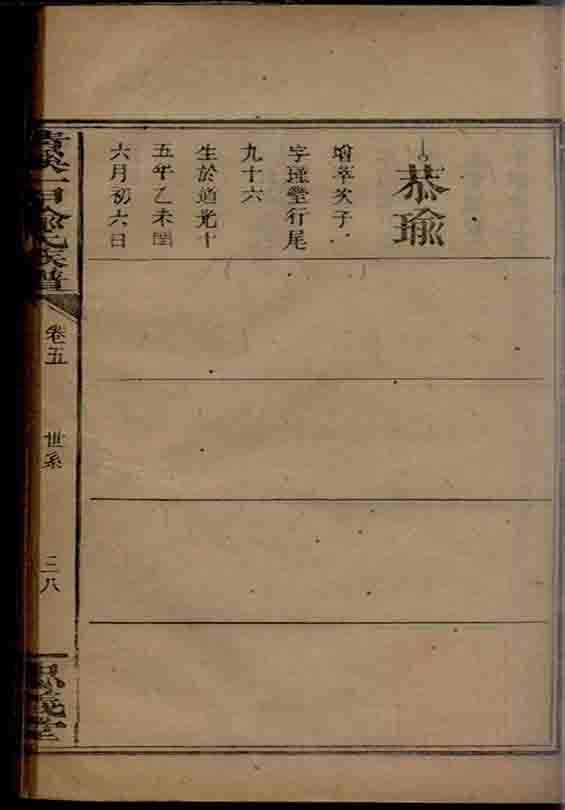 恭瑜
增萃次子
字瑾堂行尾
九十六
生於道光十
五年乙未閏
六月初六日
俞氏族譜
卷五
世系
三八
義堂